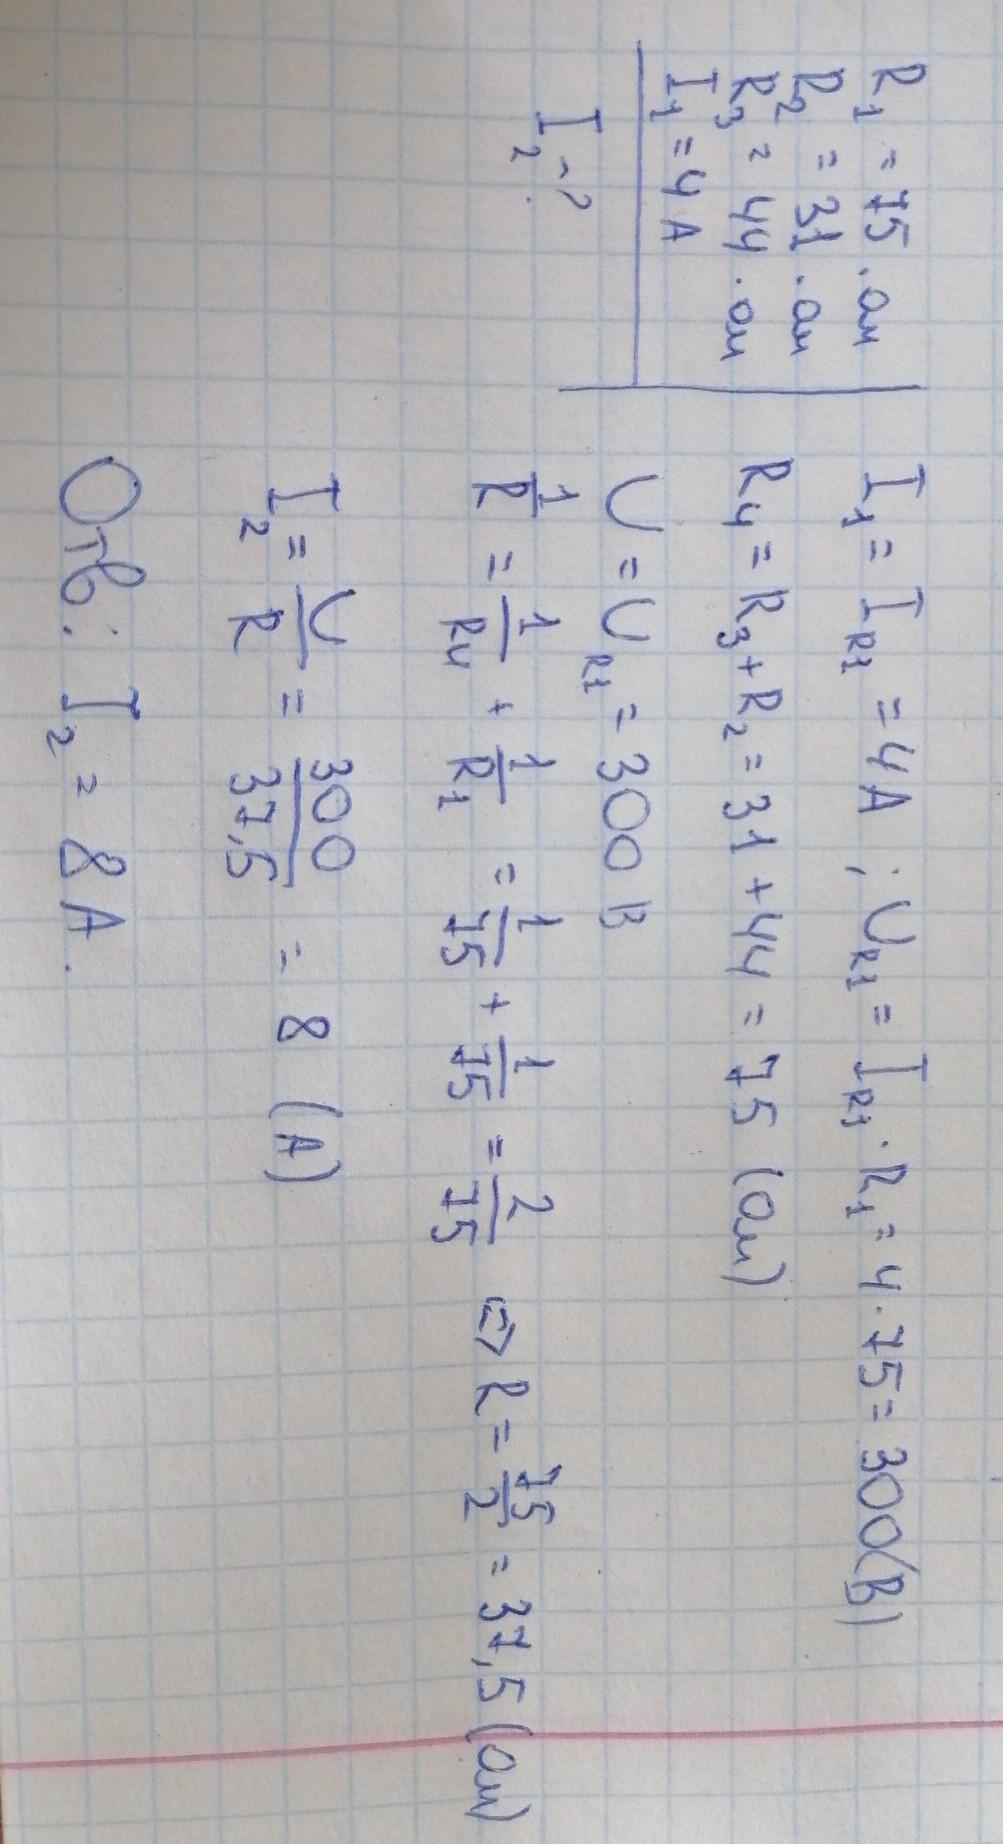 R₁ = 75 · ом
R₂ = 31 · ом
R₃ = 44 · ом
I₁ = 4 А
I₂ - ?
I₁ = I_R1 = 4А ; U_R1 = I_R1 · R₁ = 4 · 75 = 300(В)
R₄ = R₃ + R₂ = 31 + 44 = 75 (ом)
U = U_R1 = 300 В
1/R = 1/R₄ + 1/R₁ = 1/75 + 1/75 = 2/75 ⇔ R = 75/2 = 37,5 (ом)
I₂ = U/R = 300/37,5 = 8 (А)
Отв: I₂ = 8 А.